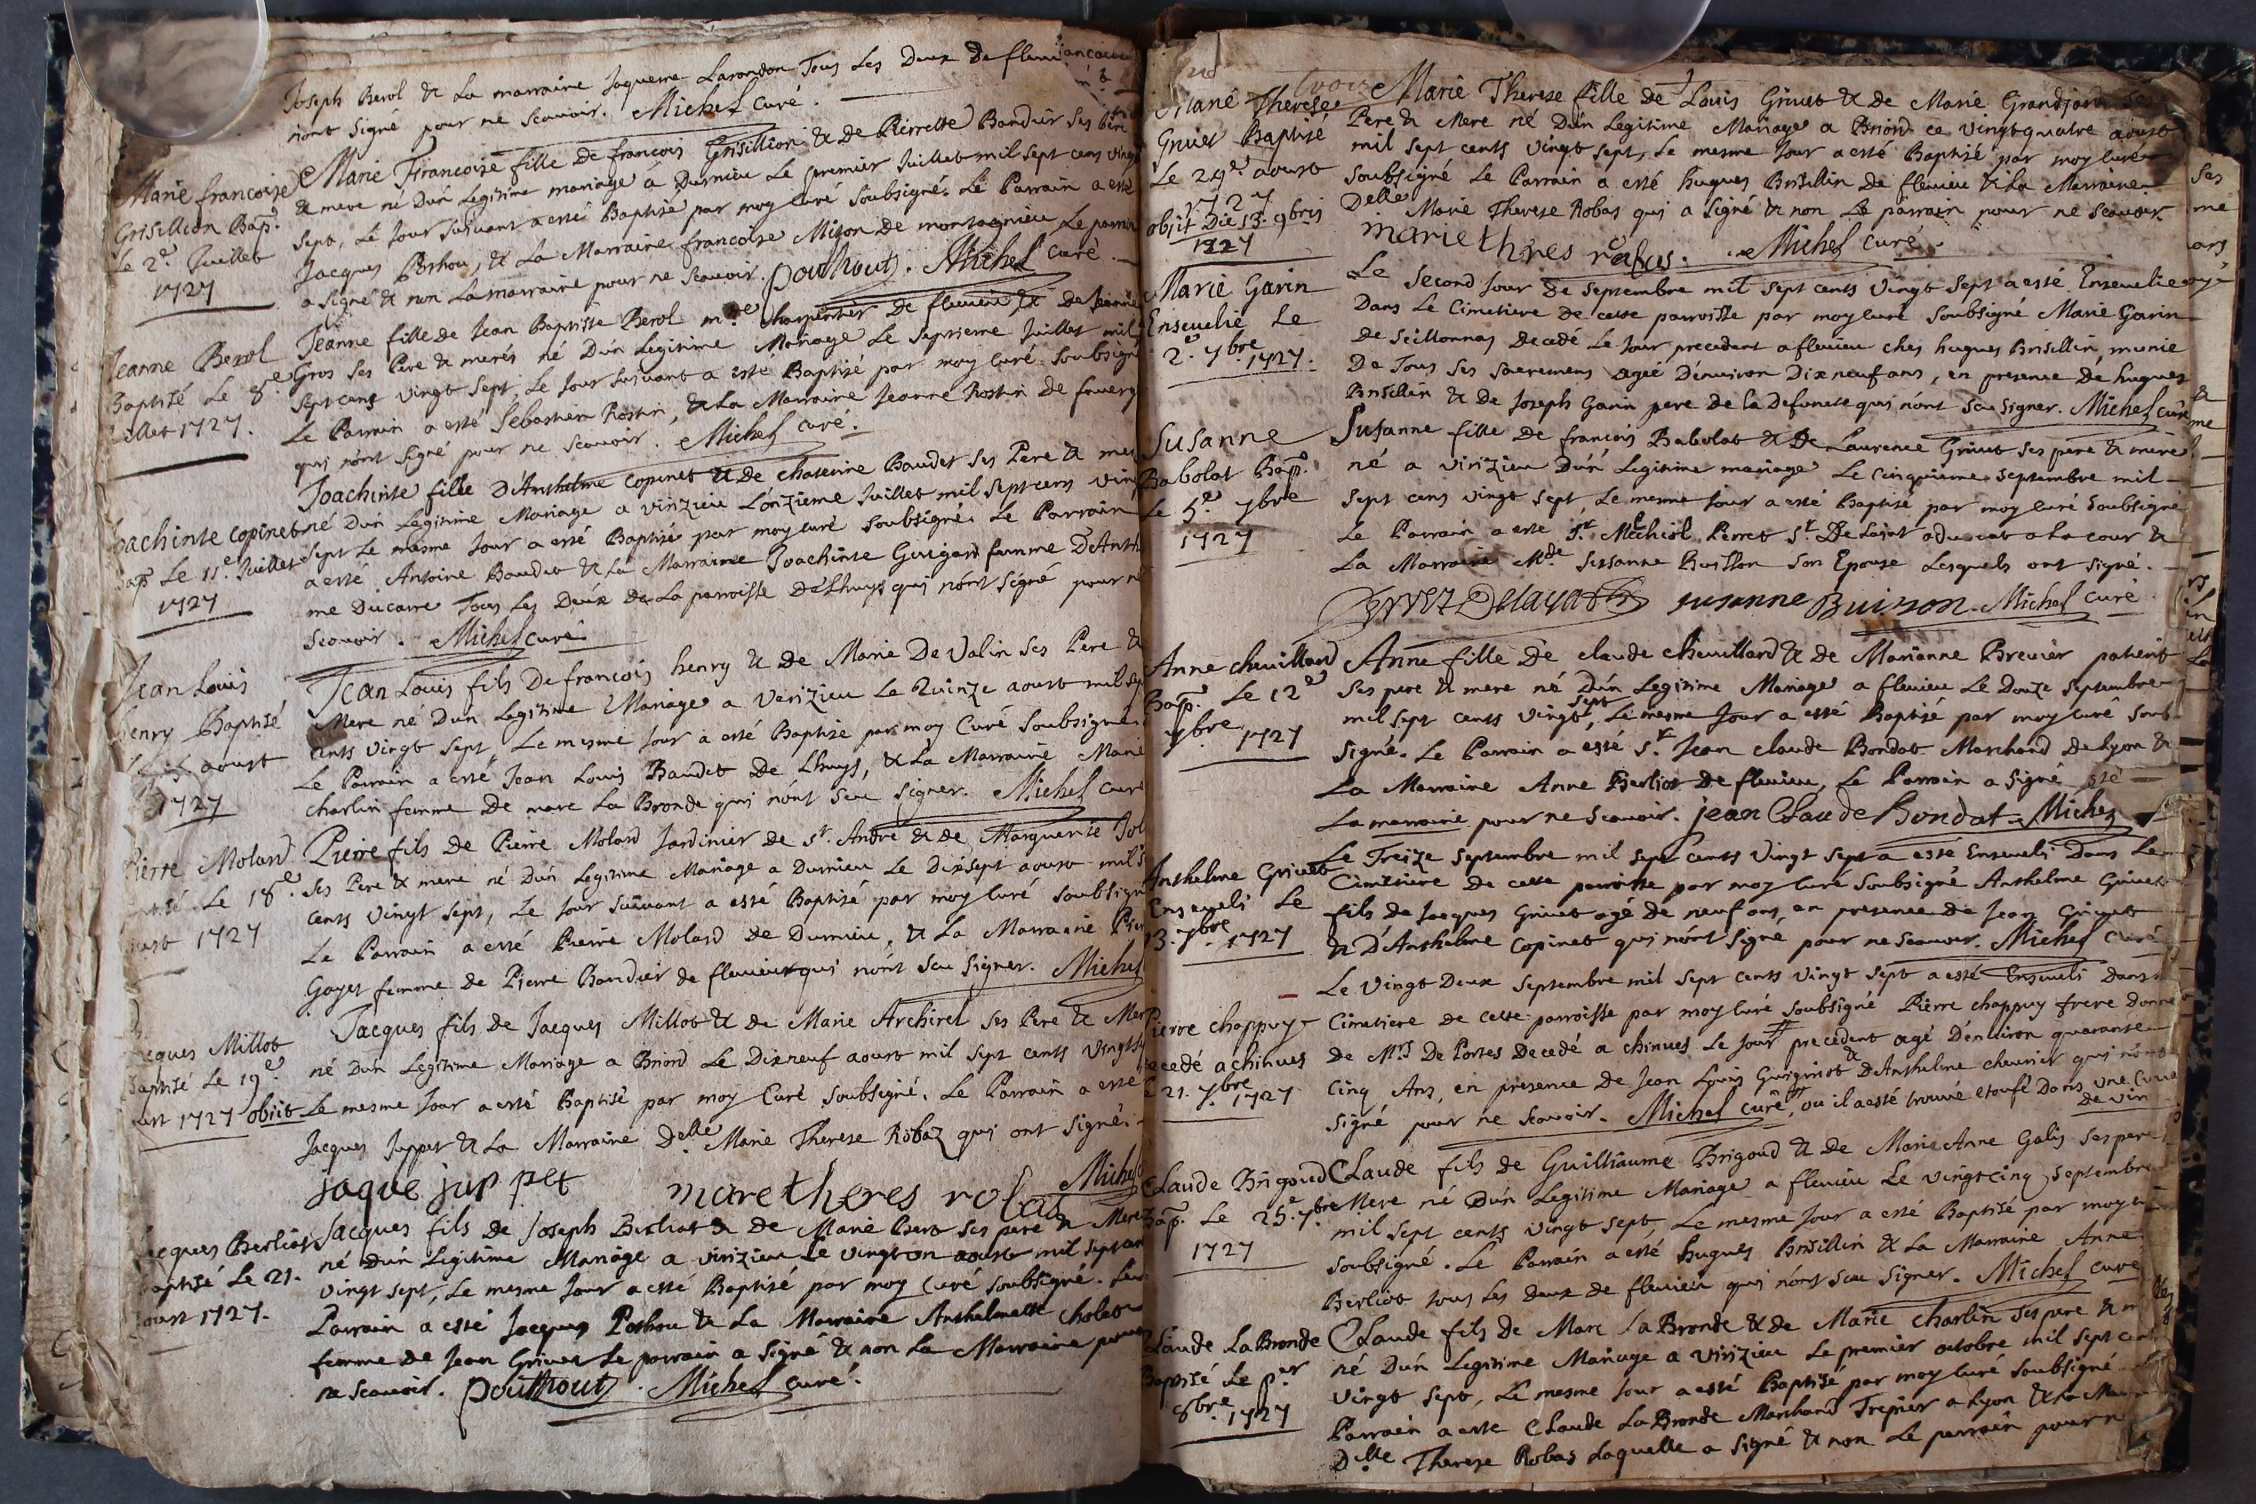 Joseph Berol & La marraine Jaqueme Larondon Tous Les Deux De fleuri
n'ont signé pour ne Scauoir. Michel curé.
Marie francoise
Grisillion Bap.
Le 2e. Juillet
1727
Marie Francoise fille de francois Grisillion & de Pierrette Bandier ses pere
& mere né Dún Legitime mariage á Durnieu Le premier Juillet mil sept cens vingt
sept, Le Jour suiuant a esté Baptisé par moy curé soubsigné. Le Parrain a esté
Jacques Poshou, & La Marraine francoise Miton de montagnieu Le parrain
a signé & non La marraine pour ne scauoir. pouthout. Michel curé
Jeanne Berol
Baptisé Le 8e
Juillet 1727.
Jeanne fille de Jean Baptiste Berol me. charpentier de fleurieu & de Jeanne
Gros ses Pere & merés né Dún Legitime Mariage Le Septieme Juillet mil
sept cens vingt sept, Le Jour suiuant a esté Baptisé par moy curé soubsigné
Le Parrain a esté Sebastien Rostin, & La Marraine Jeanne Rostin de
qui n'ont signé pour ne scauoir. Michel curé.
Joachinte copinet
Bap Le 11e. Juillet
1727
Joachinte fille D'Anthelme copinet & de chaterine Baudet ses Pere & mere
né Dún Legitime Mariage a virizieu Lónzieme Juillet mil sept cens vingt
sept Le mesme Jour a esté Baptisé par moy curé soubsigné. Le Parrain
a esté Antoine Baudet & La Marraine Joachinte Guigard femme D'Anthel
me Ducarre Tous Les Deux de La parroisse De Lhuys qui n'ont signé pour ne
Scauoir. Michel curé.
Jean Louis
henry Baptisé
aoust
1727
Jean Louis fils De francois henry & de Marie De Valin ses Pere &
Mere né Dún Legitime Mariage a Verizieu Le Quinze aoust mil sept
cents vingt sept Le mesme Jour a esté Baptisé par moy Curé Soubsigné.
Le Parrain a esté Jean Louis Baudet De Lhuys, & La Marraine Marie
Charlin femme De marc La Bronde qui n'ont seu signer. Michel curé
Pierre Molard
Le 18e.
aoust 1727
Pierre fils de Pierre Molard Jardinier de St. André & de Marguerite
ses Pere & mere né Dún Legitime Mariage a Durnieu Le Dixsept aoust mil
cents vingt sept, Le Jour suiuant a esté Baptisé par moy curé soubsigné
Le Parrain a esté Pierre Molard De Durnieu, & La Marraine
Goyet femme de Pierre Bandier de fleurieux qui n'ont seu signer. Michel
Jacques Millot
Baptisé Le 19e.
aoust 1727 obiit
Jacques fils de Jacques Millot & de Marie Archirel ses Pere & Mere
né Dún Legitime Mariage a Briord Le Dixneuf aoust mil sept cents vingt
Le mesme Jour a esté Baptisé par moy Curé soubsigné. Le Parrain a esté
Jacques Juppet & La Marraine Delle. Marie Therese Robaz qui ont signé.
jaque jup pet mare theres robas Michel
Jacques Berliot
Baptisé Le 21.
aoust 1727.
Jacques fils de Joseph Berliot & de Marie Bert ses pere & Mere
né Dún Legitime Mariage a virizieu Le vingt un aoust mil sept cens
vingt sept, Le mesme Jour a esté Baptisé par moy curé soubsigné. Le
Parrain a esté Jacques Poshou & La Marraine Anthelmette cholet
femme de Jean Griuet Le parrain a signé & non La Marraine pour
ne scauoir. pouthout. Michel curé.
Marie Therese
Griuet Baptisé
Le 24e aoust
1727
obijt Die 13. 9bris
1727
Marie Therese fille de Louis Griuet & de Marie Grandjard ses
Pere & Mere né Dún Legitime Mariage a Briord ce vingtquatre aoust
mil sept cents vingt sept, Le mesme Jour a esté Baptisé par moy curé
soubsigné Le Parrain a esté hugues Brisillin de fleurieu & La Marraine
Delle Marie Therese Robas qui a signé & non Le parrain pour ne scauoir.
marie thres robas. Michel curé.
Marie Garin
Enseuelie Le
2e. 7bre 1727.
Le second Jour de septembre mil sept cents vingt sept a esté Enseuelie
Dans Le Cimetiere de cette parroisse par moy curé soubsigné Marie Garin
de Seillonnas decedé Le Jour precedent a fleurieu ches hugues Brisillin, munie
De Tous ses sacremens ageé D'enuiron Dixneuf ans, en presence de hugues
Brisillin & de Joseph Garin pere de la Defuncte qui n'ont seu signer. Michel curé
Susanne
Babolat Bap.
Le 5e. 7bre
1727
Susanne fille de francois Babolat & De Laurence Griuet ses pere & mere
né a virizieu Dún Legitime mariage Le cinquieme septembre mil
sept cens vingt sept, Le mesme Jour a esté Baptisé par moy curé soubsigné
Le Parrain a esté Sr. Michiel Perret Sr. De Laiat aduocat a La cour &
La Marraine Mde. Susanne Buisson son Epouse Lesquels ont signé.
perret Delayat susanne Buisson Michel curé
Anne cheuillard
Bap. Le 12e
7bre 1727
Anne fille De claude cheuillard & de Marianne Breuier patient
ses pere & mere né Dún Legitime Mariage a fleurieu Le Douze septembre
mil sept cents vingt sept, Le mesme Jour a esté Baptisé par moy curé soub-
signé. Le Parrain a esté Sr. Jean claude Bondat Marchand de Lyon &
La Marraine Anne Berliot De fleurieu, Le Parrain a signé
La marraine pour ne scauoir. jean Claude Bondat. Michel
Anthelme Griuet
Enseueli Le
13. 7bre. 1727
Le Treize septembre mil sept cents vingt sept a esté Enseueli Dans Le
Cimetiere de cette parroisse par moy curé soubsigné Anthelme Griuet
fils de Jacques Griuet agé de neuf ans, en presence de Jean Griuet
& D'Anthelme copinet qui n'ont signé pour ne scauoir. Michel curé
Pierre chappuy
decedé a chinues
Le 21. 7bre. 1727
Le vingt Deux septembre mil sept cents vingt sept a esté Enseueli dans
Cimetiere de cette parroisse par moy curé soubsigné Pierre chappuy frere donné
de Mrs De Portes Decedé a chinues Le Jour # precedent agé D'enuiron quarante
cinq Ans, en presence de Jean Louis Guigniot & D'Anthelme cheurier qui n'ont
signé pour ne scauoir. Michel curé # ou il a esté trouvé etoufé Dans une Cuue
de vin
Claude Brigoud
Bap. Le 25e. 7bre
1727
Claude fils de Guilliaume Brigoud & de Marie Anne Galis ses pere
& Mere né Dún Legitime Mariage a fleurieu Le vingtcinq septembre
mil sept cents vingt sept, Le mesme Jour a esté Baptisé par moy
soubsigné. Le Parrain a esté hugues Brisillin & La Marraine Anne
Berliot tous Les deux de fleurieu qui n'ont seu signer. Michel curé
Claude La Bronde
Baptisé Le per
8bre. 1727
Claude fils de Marc La Bronde & de Marie charlin ses pere &
né Dún Legitime Mariage a virizieu Le premier octobre mil sept cent
vingt sept, Le mesme Jour a esté Baptisé par moy curé soubsigné
Parrain a esté Claude La Bronde Marchand Trepier a Lyon & La
Delle Therese Robas Laquelle a signé & non Le parrain pour